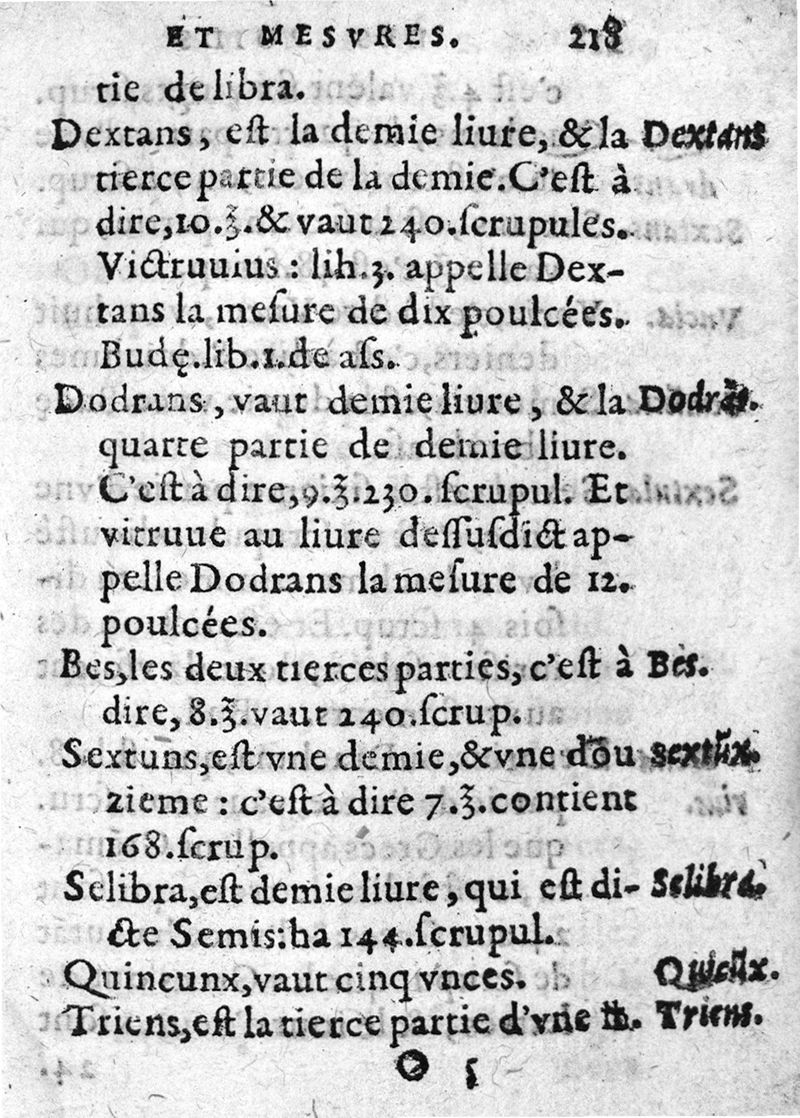 ET MESVRES. 218
tie de libra.
Dextans, eſt la demie liure, & la Dextans
tierce partie de la demie. C'eſt à
dire, 10.℥.& vaut 240.ſcrupules.
Victruuius : lih.3. appelle Dex-
tans la meſure de dix poulcées.
Budę.lib.1.de aſs.
Dodrans, vaut demie liure, & la Dodrãs.
quarte partie de demie liure.
C'eſt à dire, 9.℥.230.ſcrupul. Et
vitruue au liure deſſuſdict ap-
pelle Dodrans la meſure de 12.
poulcées.
Bes, les deux tierces parties, c'eſt à Bes.
dire, 8.℥.vaut 240.ſcrup.
Sextuns, eſt vne demie, & vne dou sextũx.
zieme : c'eſt à dire 7.℥.contient
168.ſcrup.
Selibra, eſt demie liure, qui eſt di- Selibra.
cte Semis: ha 144.ſcrupul.
Quincunx, vaut cinq vnces. Quicũx.
Triens, eſt la tierce partie d'vne ℔. Triens.
O 5